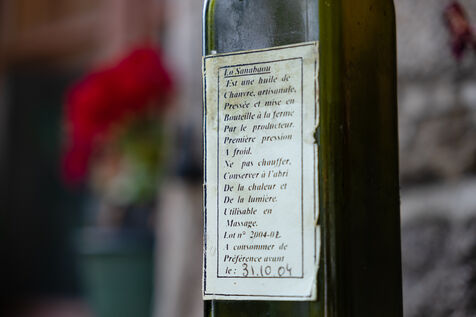 Lo Sanabaou
Est une huile de
Chanvre, artisanale,
Pressée et mise en
Bouteille à la ferme
Par le producteur.
Première pression
A froid.
Ne pas chauffer,
Conserver à l'abri
De la chaleur et
De la lumière.
Utilisable en
Massage.
Lot n° 2004-02
A consommer de
Préférence avant
le : 31.10 04